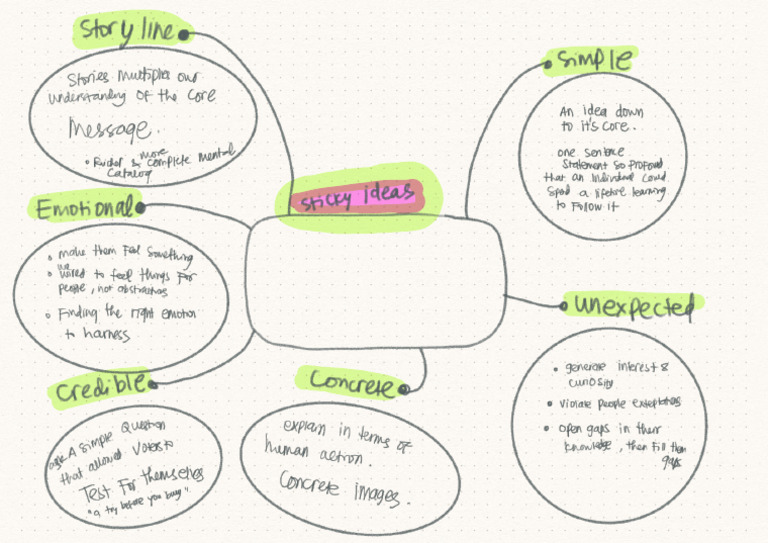 Story line
Stories multiplies our
understanding of the core
Message.
• Richer & more complete mental
catalog
Simple
An idea down
to it's core.
one sentence
statement so profound
that an individual could
spend a lifetime learning
to follow it
sticky ideas
Emotional
• make them feel something
• we wired to feel things for
people, not abstractions
• Finding the right emotion
to harness
unexpected
• generate interest &
curiosity
• violate people expectations
• open gaps in their
knowledge, then fill them
gaps
Credible
A simple Question
that allowed Voters to
Test For themselves
"a try before you buy"
Concrete
explain in terms of
human action.
Concrete images.